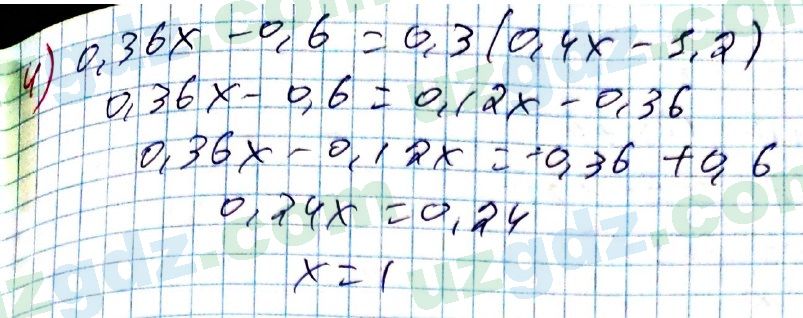 4) 0,36x - 0,6 = 0,3(0,4x - 1,2)
0,36x - 0,6 = 0,12x - 0,36
0,36x - 0,12x = -0,36 + 0,6
0,24x = 0,24
x = 1
uzgdz.com